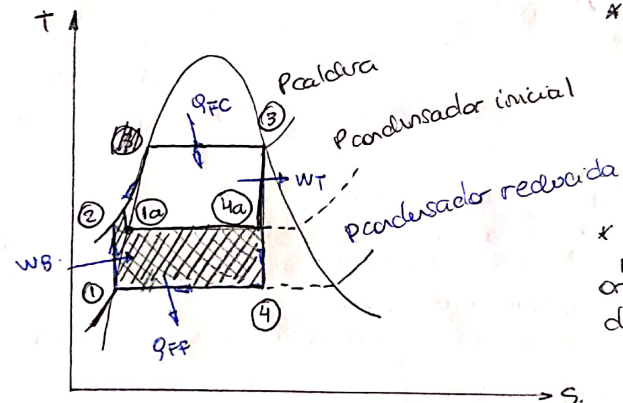 T
*
Pcaldera
qFC
③
Pcondensador inicial
WT
②
1a
4a
Pcondensador reducida
WB
*
①
④
qFF
S.